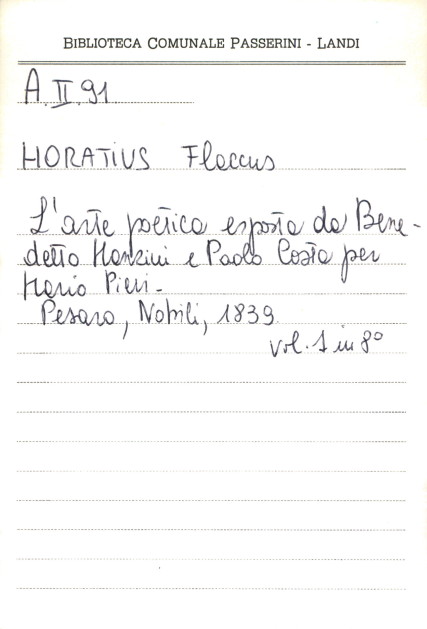 BIBLIOTECA COMUNALE PASSERINI - LANDI
A.II.91
HORATIUS Flaccus
L'arte poetica esposta da Bene-
detto Menzini e Paolo Costa per
Mario Pieri.
Pesaro, Nobili, 1839
vol. 1 in 8°